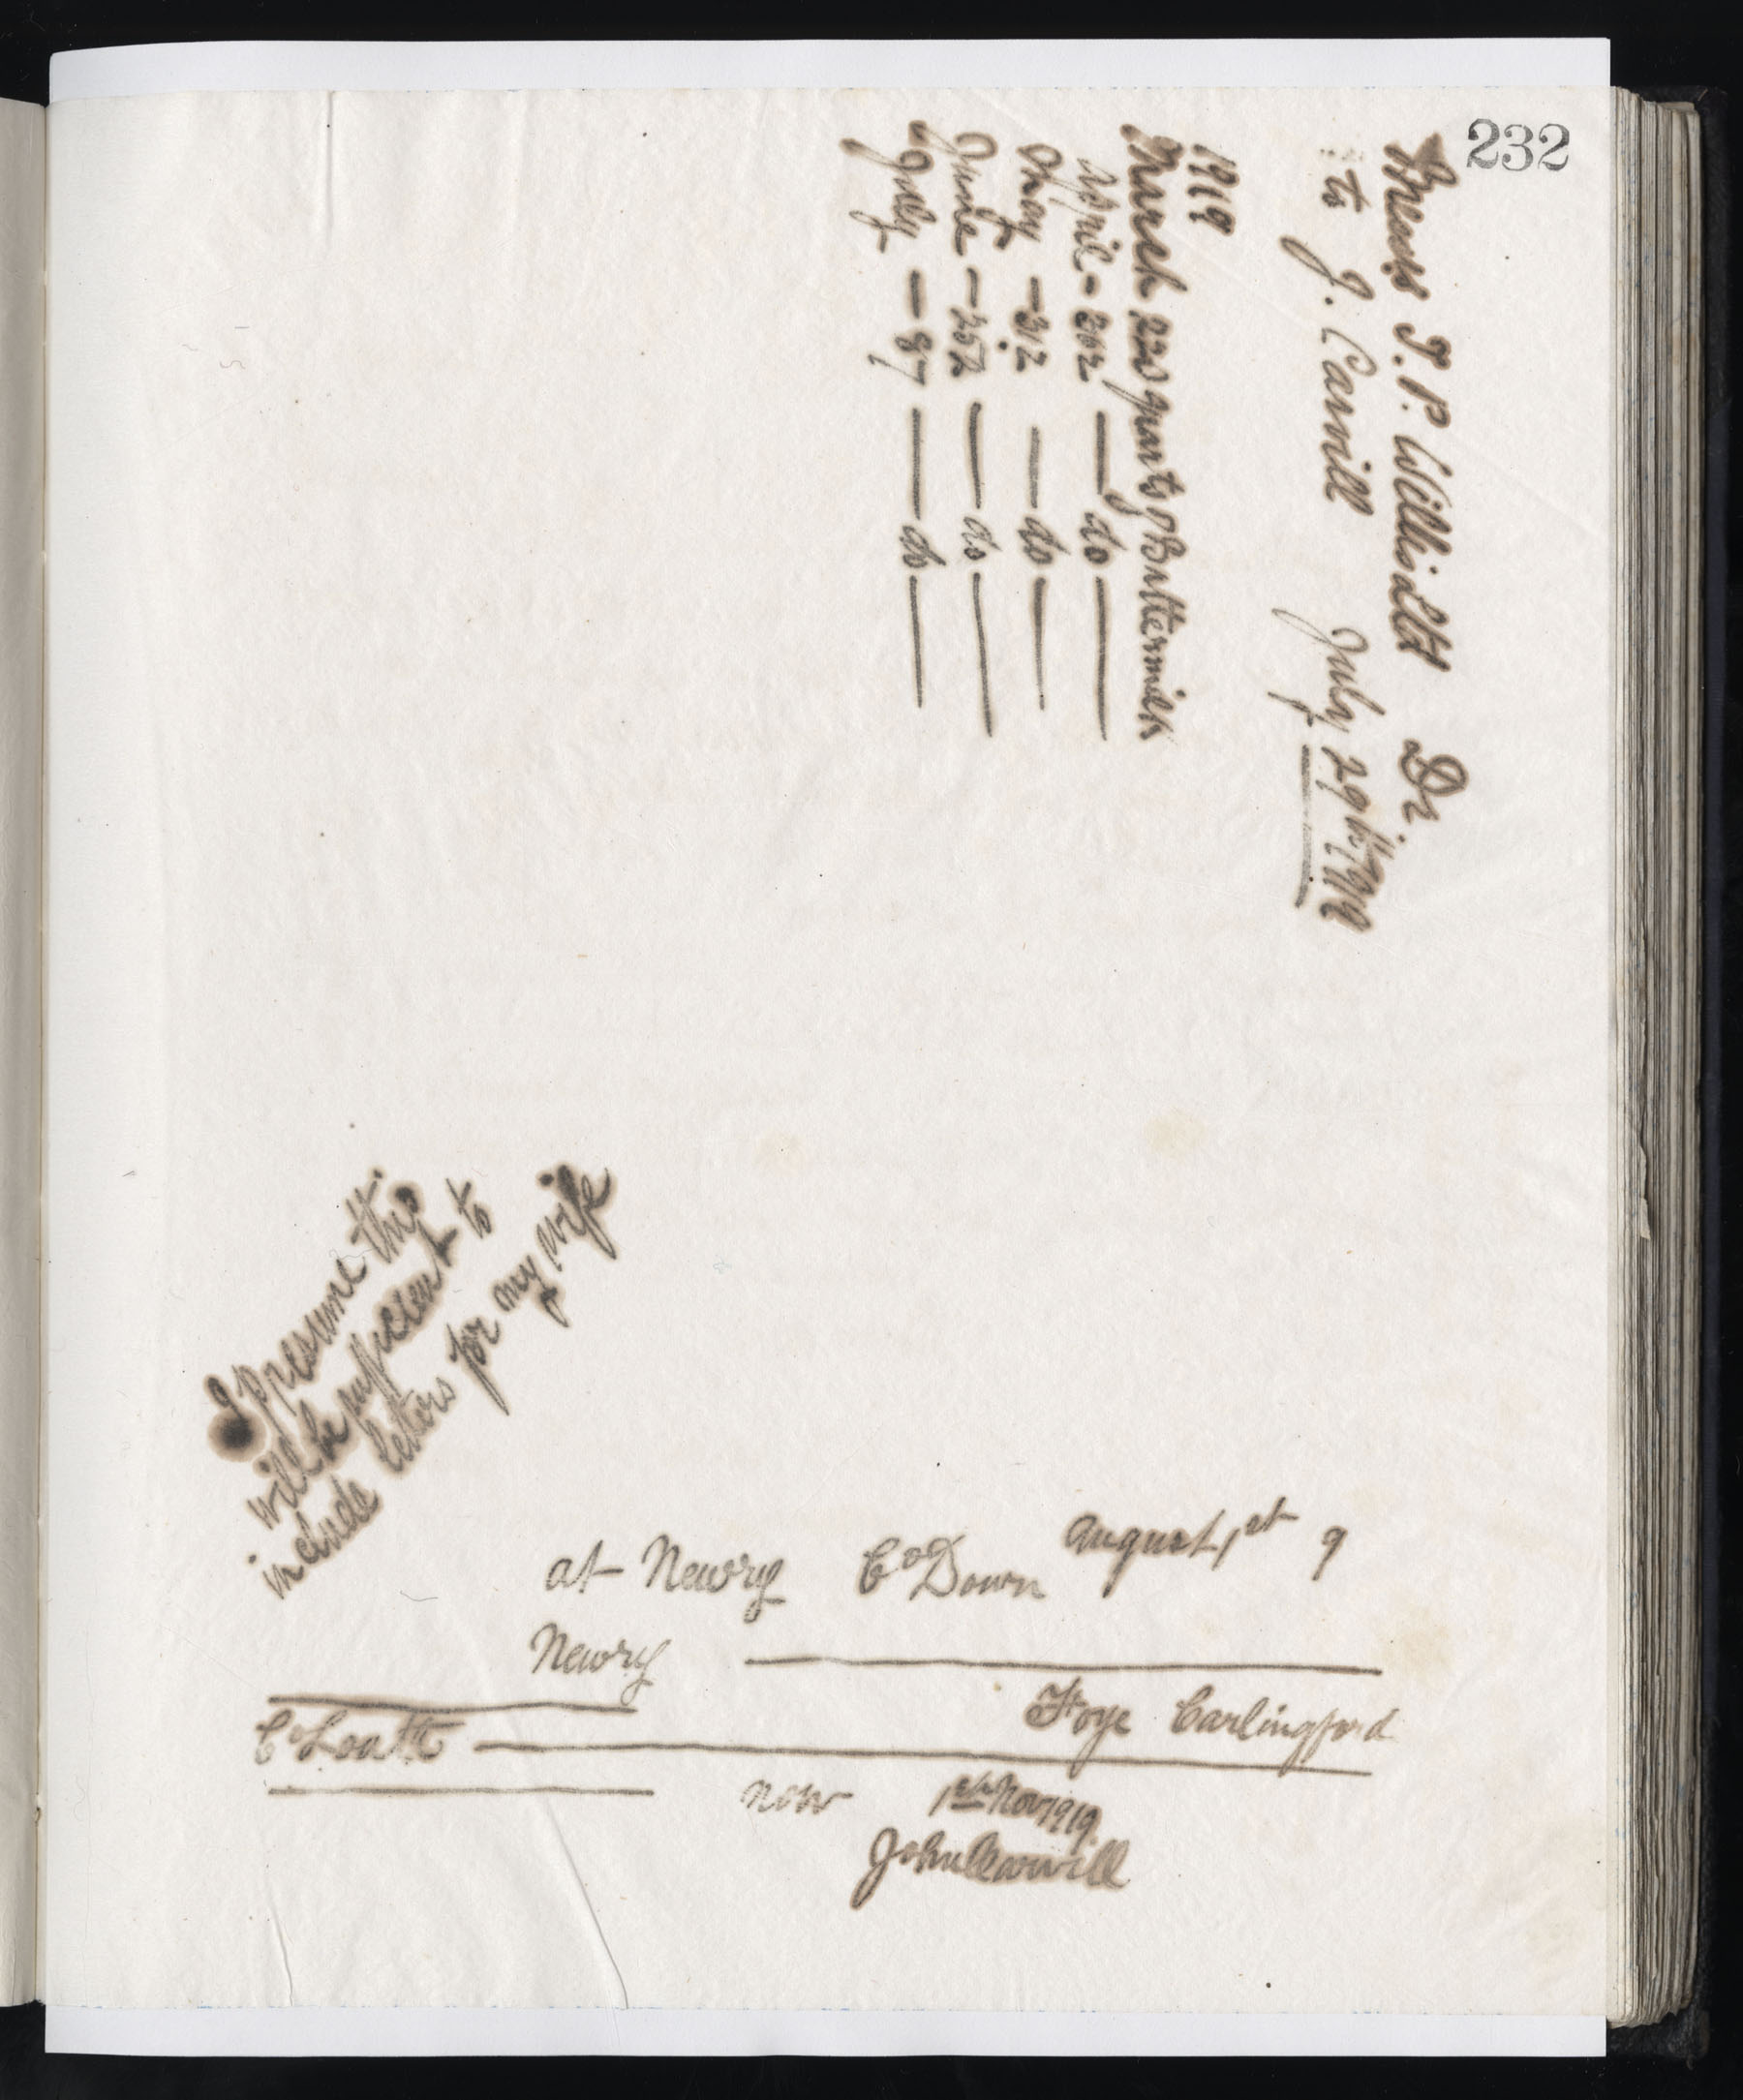 232
Messrs T. P. Willis & Co Ltd Dr.
to J. Carvill July 29th/1919
1919
March 220 quarts of Buttermilk
April - 362 — do —
May - 312 — do —
June - 252 — do —
July - 87 — do —
I presume this
will be sufficient to
include letters for my wife
at Newry Co Down August 1st 9
Newry
Foye Carlingford
Co Louth
now 1st Nov 1919
John Carvill